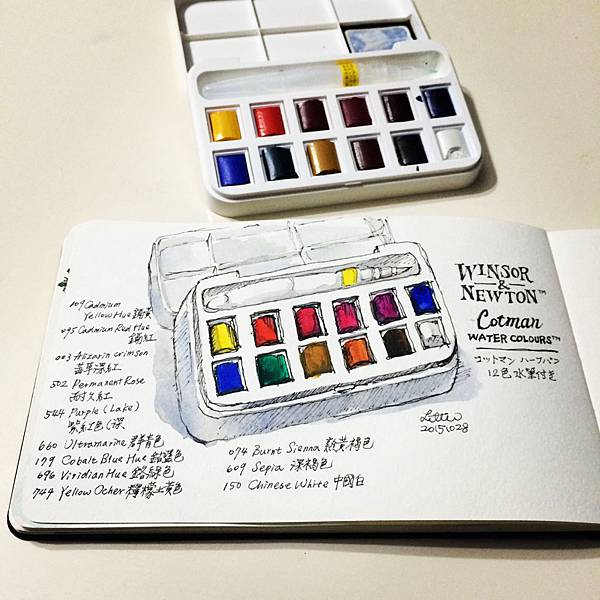 109 Cadmium
Yellow Hue 鎘黃
095 Cadmium Red Hue
鎘紅
003 Alizarin crimson
茜草深紅
502 Permanent Rose
耐久紅
544 Purple (Lake)
紫紅色(深
660 Ultramarine 群青色
179 Cobalt Blue Hue 鈷藍色
696 Viridian Hue 鉻綠色
744 Yellow Ocher 檸檬土黃色
074 Burnt Sienna 熟黃褐色
609 Sepia 深褐色
150 Chinese White 中國白
WINSOR
&
NEWTON™
Cotman
WATER COLOURS™
コットマン ハーフパン
12色 水筆付き
20151028